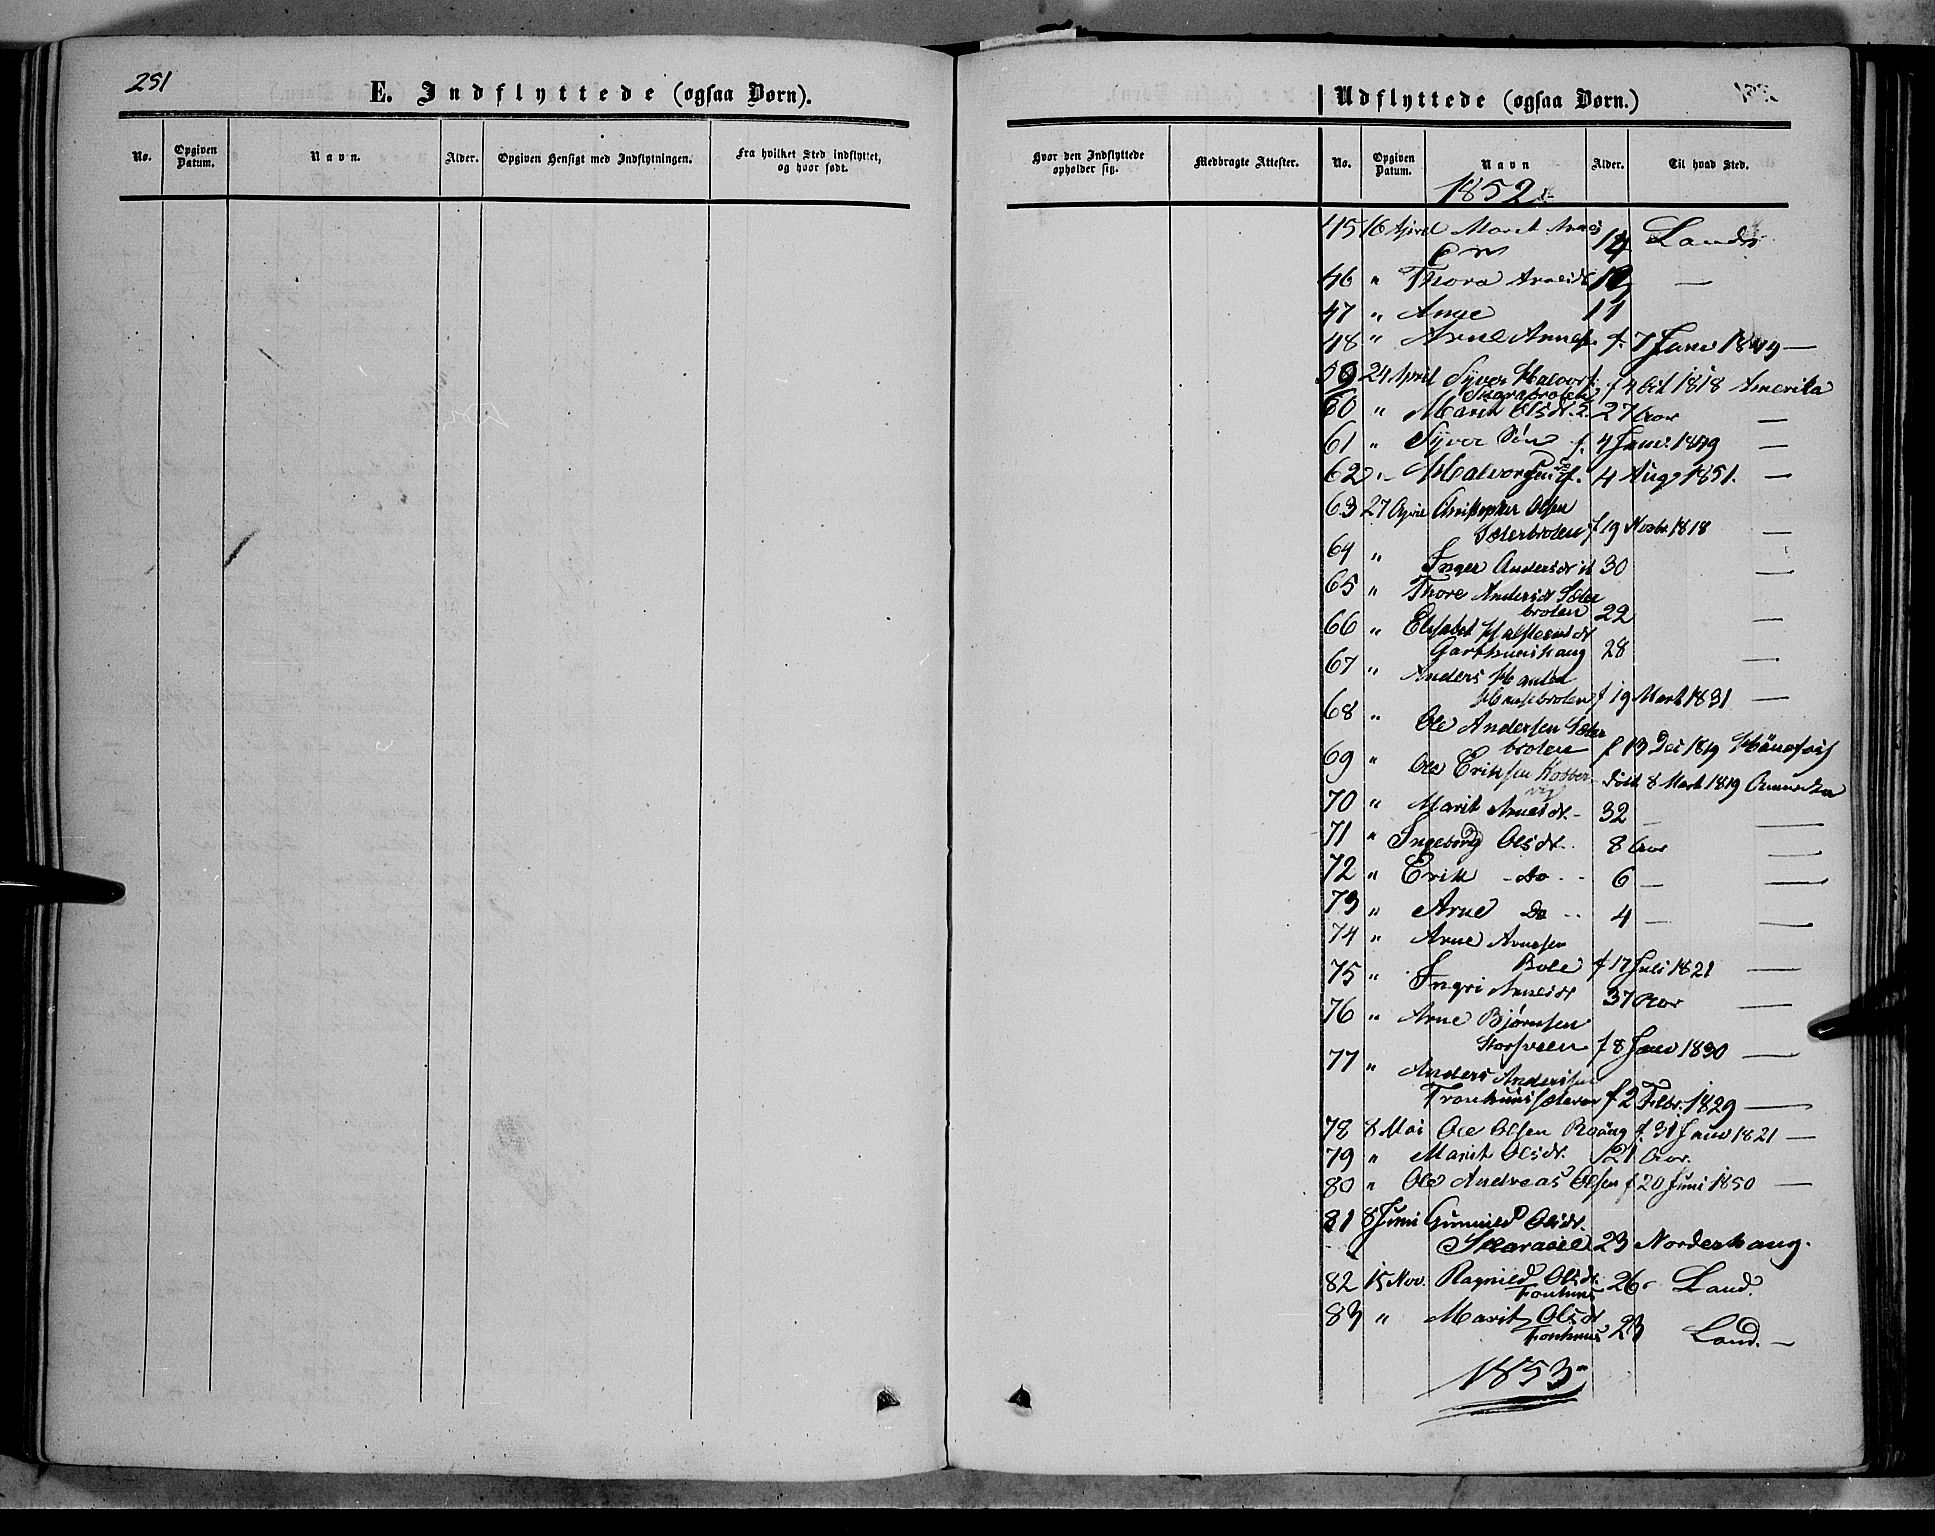 251
E. Indflyttede (ogsaa Børn).
No.
Opgiven Datum.
Navn.
Alder.
Opgiven Hensigt med Indflytningen.
Fra hvilket Sted indflyttet, og hvor født.
Hvor den Indflyttede opholder sig.
Medbragte Attester.
Udflyttede (ogsaa Børn.)
No.
Opgiven Datum.
Navn
Alder.
Til hvad Sted.
1852
45 16 April Marit 14 Land
46 " Thora Arnesdt 12 —
47 " Anne 11
48 " Arne Arnes. f. 7 Janv 1849 —
59 24 April Syver Halvors. f 4 Oct 1818 Amerika
60 " Marit Olsdt. 27 Aar —
61 " Syver Søn f. 4 Janv. 1849 —
62 " Halvor Søn f. 4 Aug 1851. —
63 27 April Christopher Olsen
Sæterbroten f 19 Novbr 1818 —
64 " Inger Andersdt 30 —
65 " Thore Andersdt Sæter
broten 22 —
66 " Elisabet Halsteensdt
Garthushaug 28 —
67 " Anders
f 19 Mart 1831 —
68 " Ole Andersen Sæter
broten f 13 Dec 1819 Hönefos
69 " Ole Eriksen Kobber
vig født 8 Mart 1819 Amerika
70 " Marit Arnesdt. 32 — —
71 " Ingeborg Olsdt. 8 Aar —
72 " Erik - do - 6 — —
73 " Arne Do - 4 — —
74 " Arne Arnesen
Bole f 17 Juli 1821 —
75 " Ingri Arnesdt 37 Aar —
76 " Arne Bjørnsen
Storsveen f 8 Janv 1830 —
77 " Anders Andersen
Tronhussæteren f 2 Febr. 1829 —
78 8 Mai Ole Olsen f. 31 Janv 1821 —
79 " Marit Olsdt. 21 Aar.
80 " Ole Andreas Olsen f 20 Juni 1850 —
81 8 Juni Gunnild Olsdt.
23 Norderhaug.
82 15 Nov. Ragnild Olsdt. 26 Land.
Tronhus
83 " Marit Olsdt
Tronhus 23 Land. —
1853